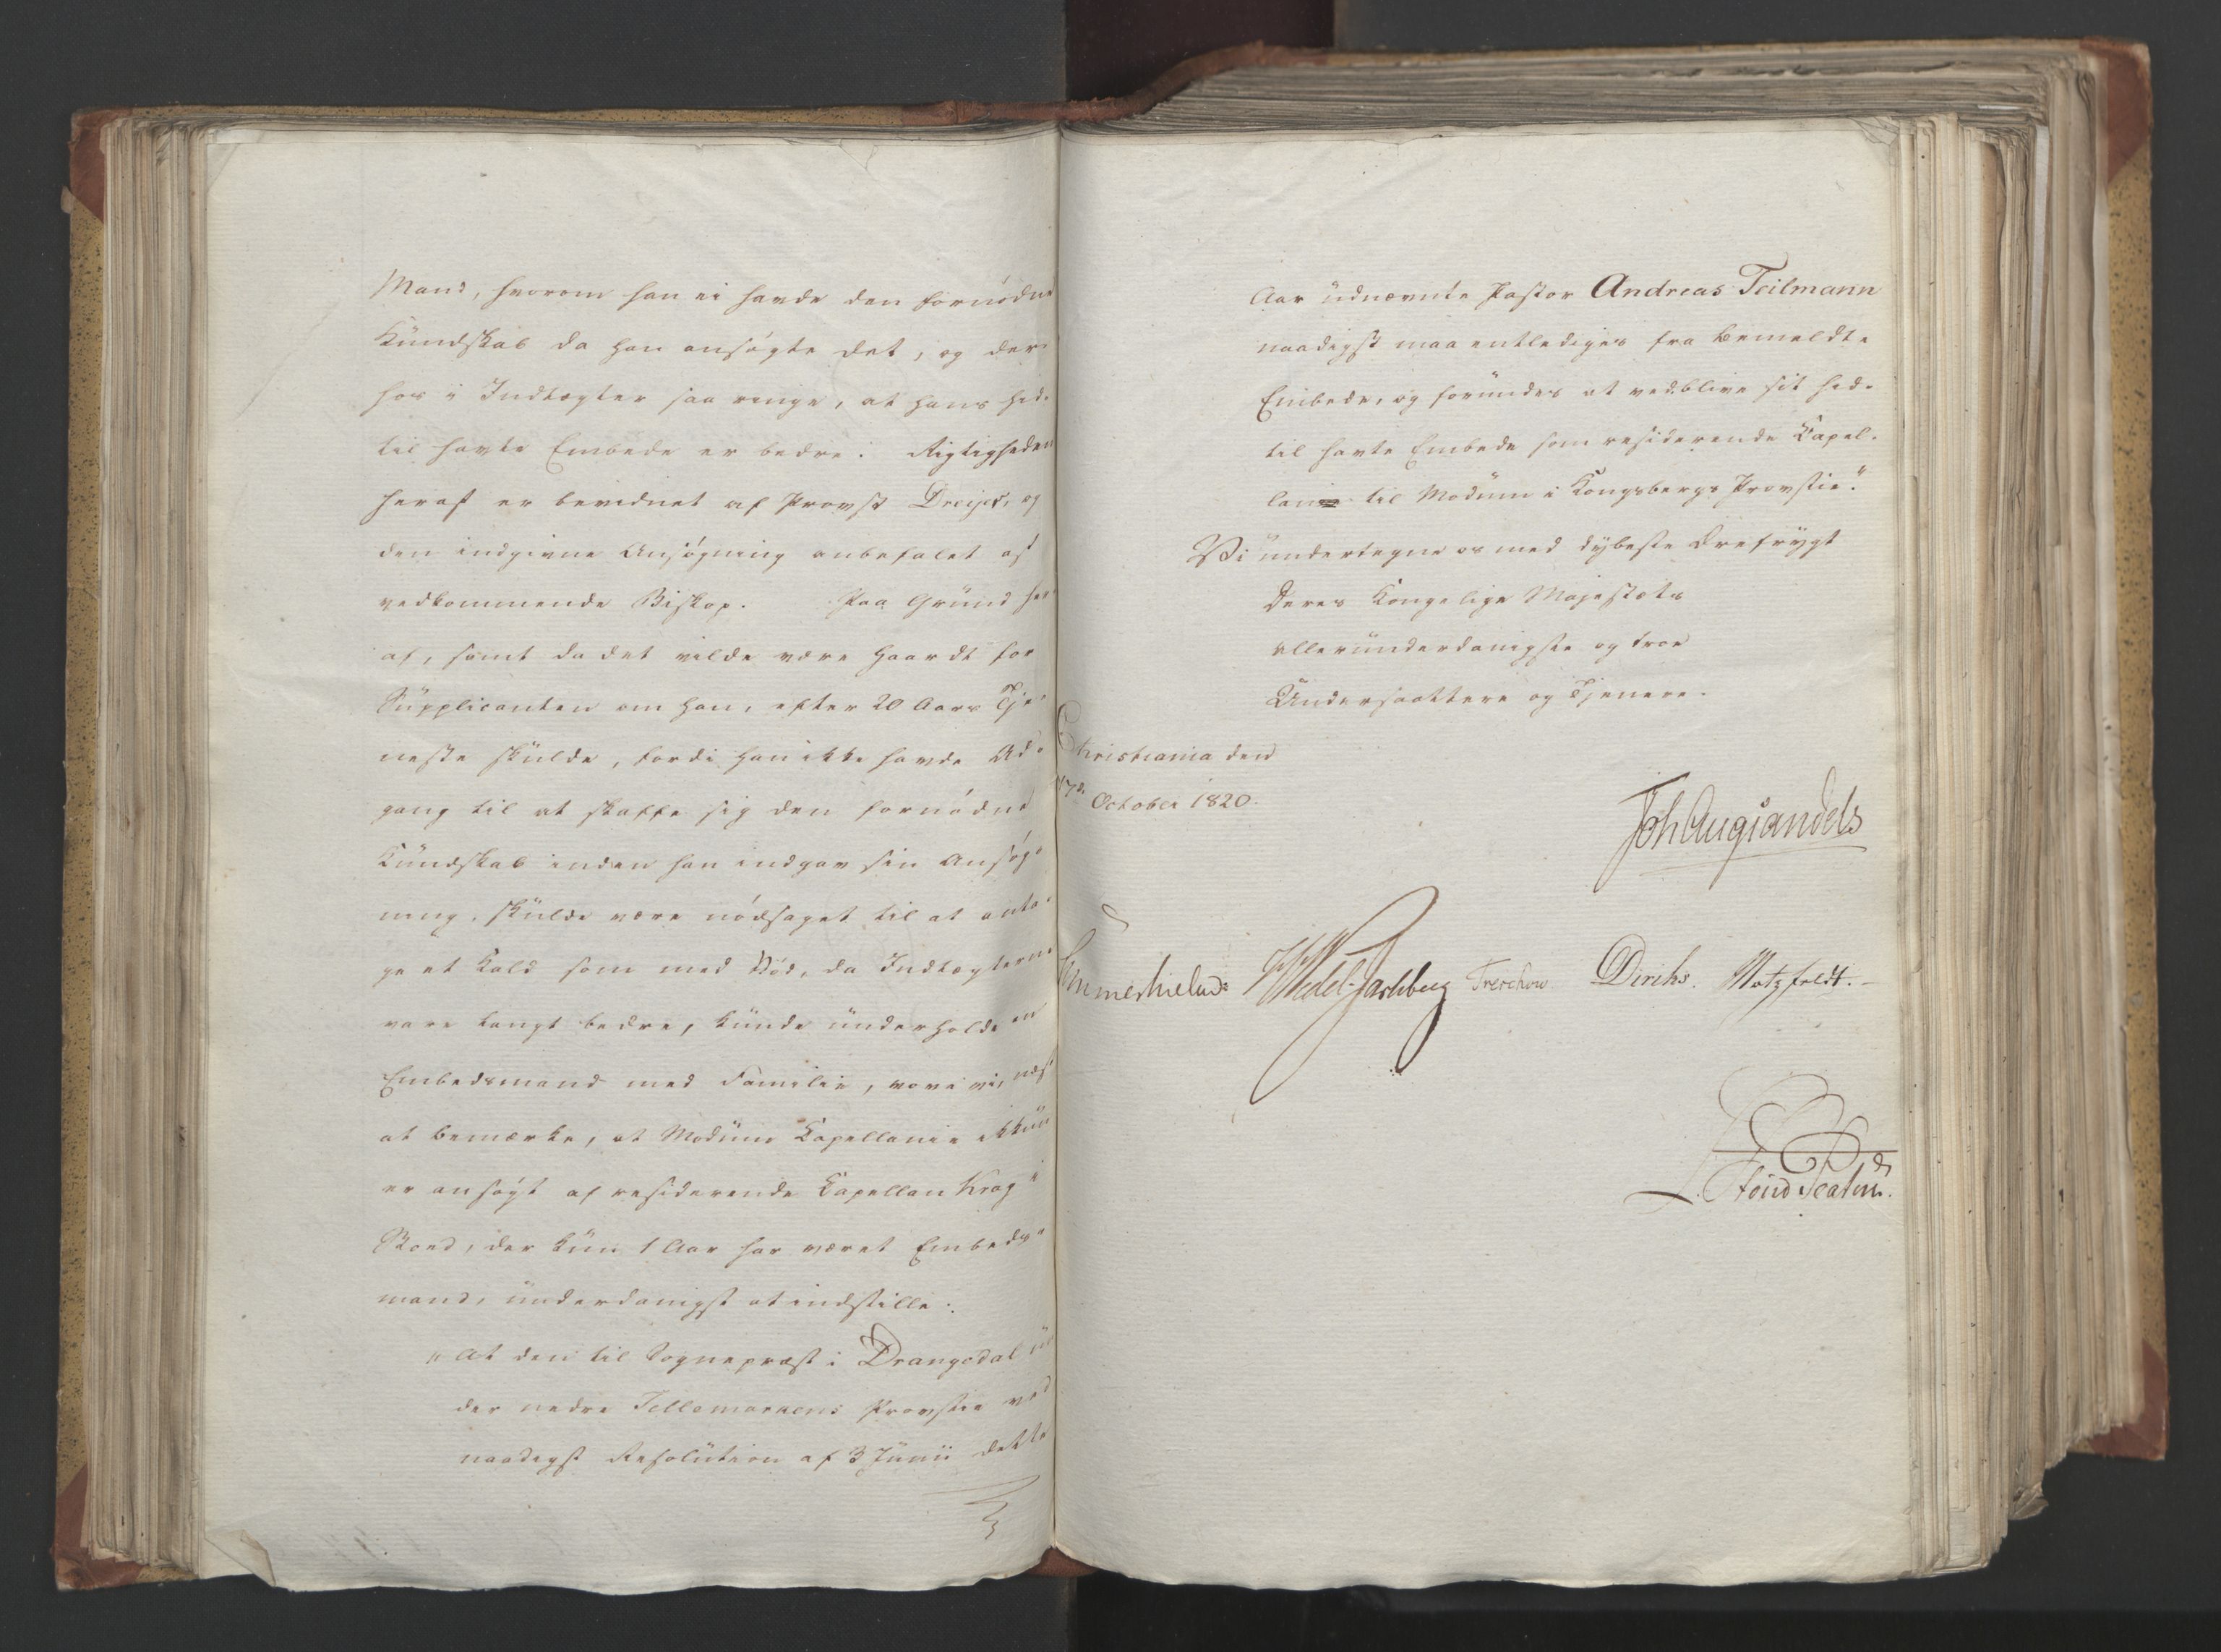 Mand, hvorom han ei havde den fornødne
Kundskab da han ansøgte det, og der-
hos i Indtægter saa ringe, at hans hid-
til havte Embede er bedre. Rigtigheden
heraf er bevidnet af Provst Dreijer, og
den indgivne Ansøgning anbefalet af
vedkommende Biskop. Paa Grund her-
af, samt da det vilde være haardt for
Supplicanten om han, efter 20 Aars Tje-
neste skulde, fordi han ikke havde Ad-
gang til at skaffe sig den fornødne
Kundskab inden han indgav sin Ansøg-
ning, skulde være nødsaget til at anta-
ge et Kald som med Nød, da Indtægterne
vare langt bedre, kunde underholde en
Embedsmand med Familie, vove vi, næst
at bemærke, at Modum Capellanie ikkun
er ansøgt af residerende Capellan Krog i
der kun 1 Aar har været Embeds-
mand, underdanigst at indstille:
"At den til Sognepræst i Drangedal un-
der nedre Tellemarkens Provstie ved
naadigst Resolution af 3 Junii dette
Aar udnævnte Pastor Andreas Teilmann
naadigst maa entlediges fra bemeldte
Embede, og forundes at vedblive sit hid-
til havte Embede som residerende Capel-
lan til Modum i Kongsbergs Provstie."
Vi undertegne os med dybeste Ærefrygt
Deres Kongelige Majestæts
allerunderdanigste og troe
Undersaattere og Tjenere.
Christiania den
17de October 1820.
Joh Aug Sandels
Sommerhielm
HWedel-Jarlsberg Treschow Diriks. Motzfeldt.